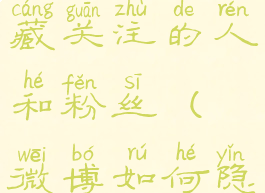 cáng guān zhù de rén
藏关注的人
hé fěn sī
和粉丝（
wēi bó rú hé yǐn
微博如何隐